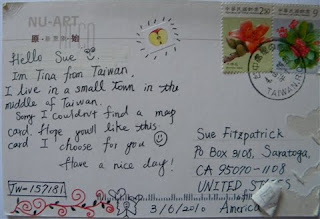 NU-ART
原·新票新·始
中華民國郵票
250
中華民國郵票
9
TAIWAN, R
Hello Sue
Im Tina from Taiwan.
I live in a small town in the
middle of Taiwan.
Sorry I couldn't find a map
card. Hope you'll like this
card I choose for you
Have a nice day!
TW-157181
3/6/2010
Sue Fitzpatrick
Po Box 3108, Saratoga,
CA 95070-1108
UNITED STATES
America